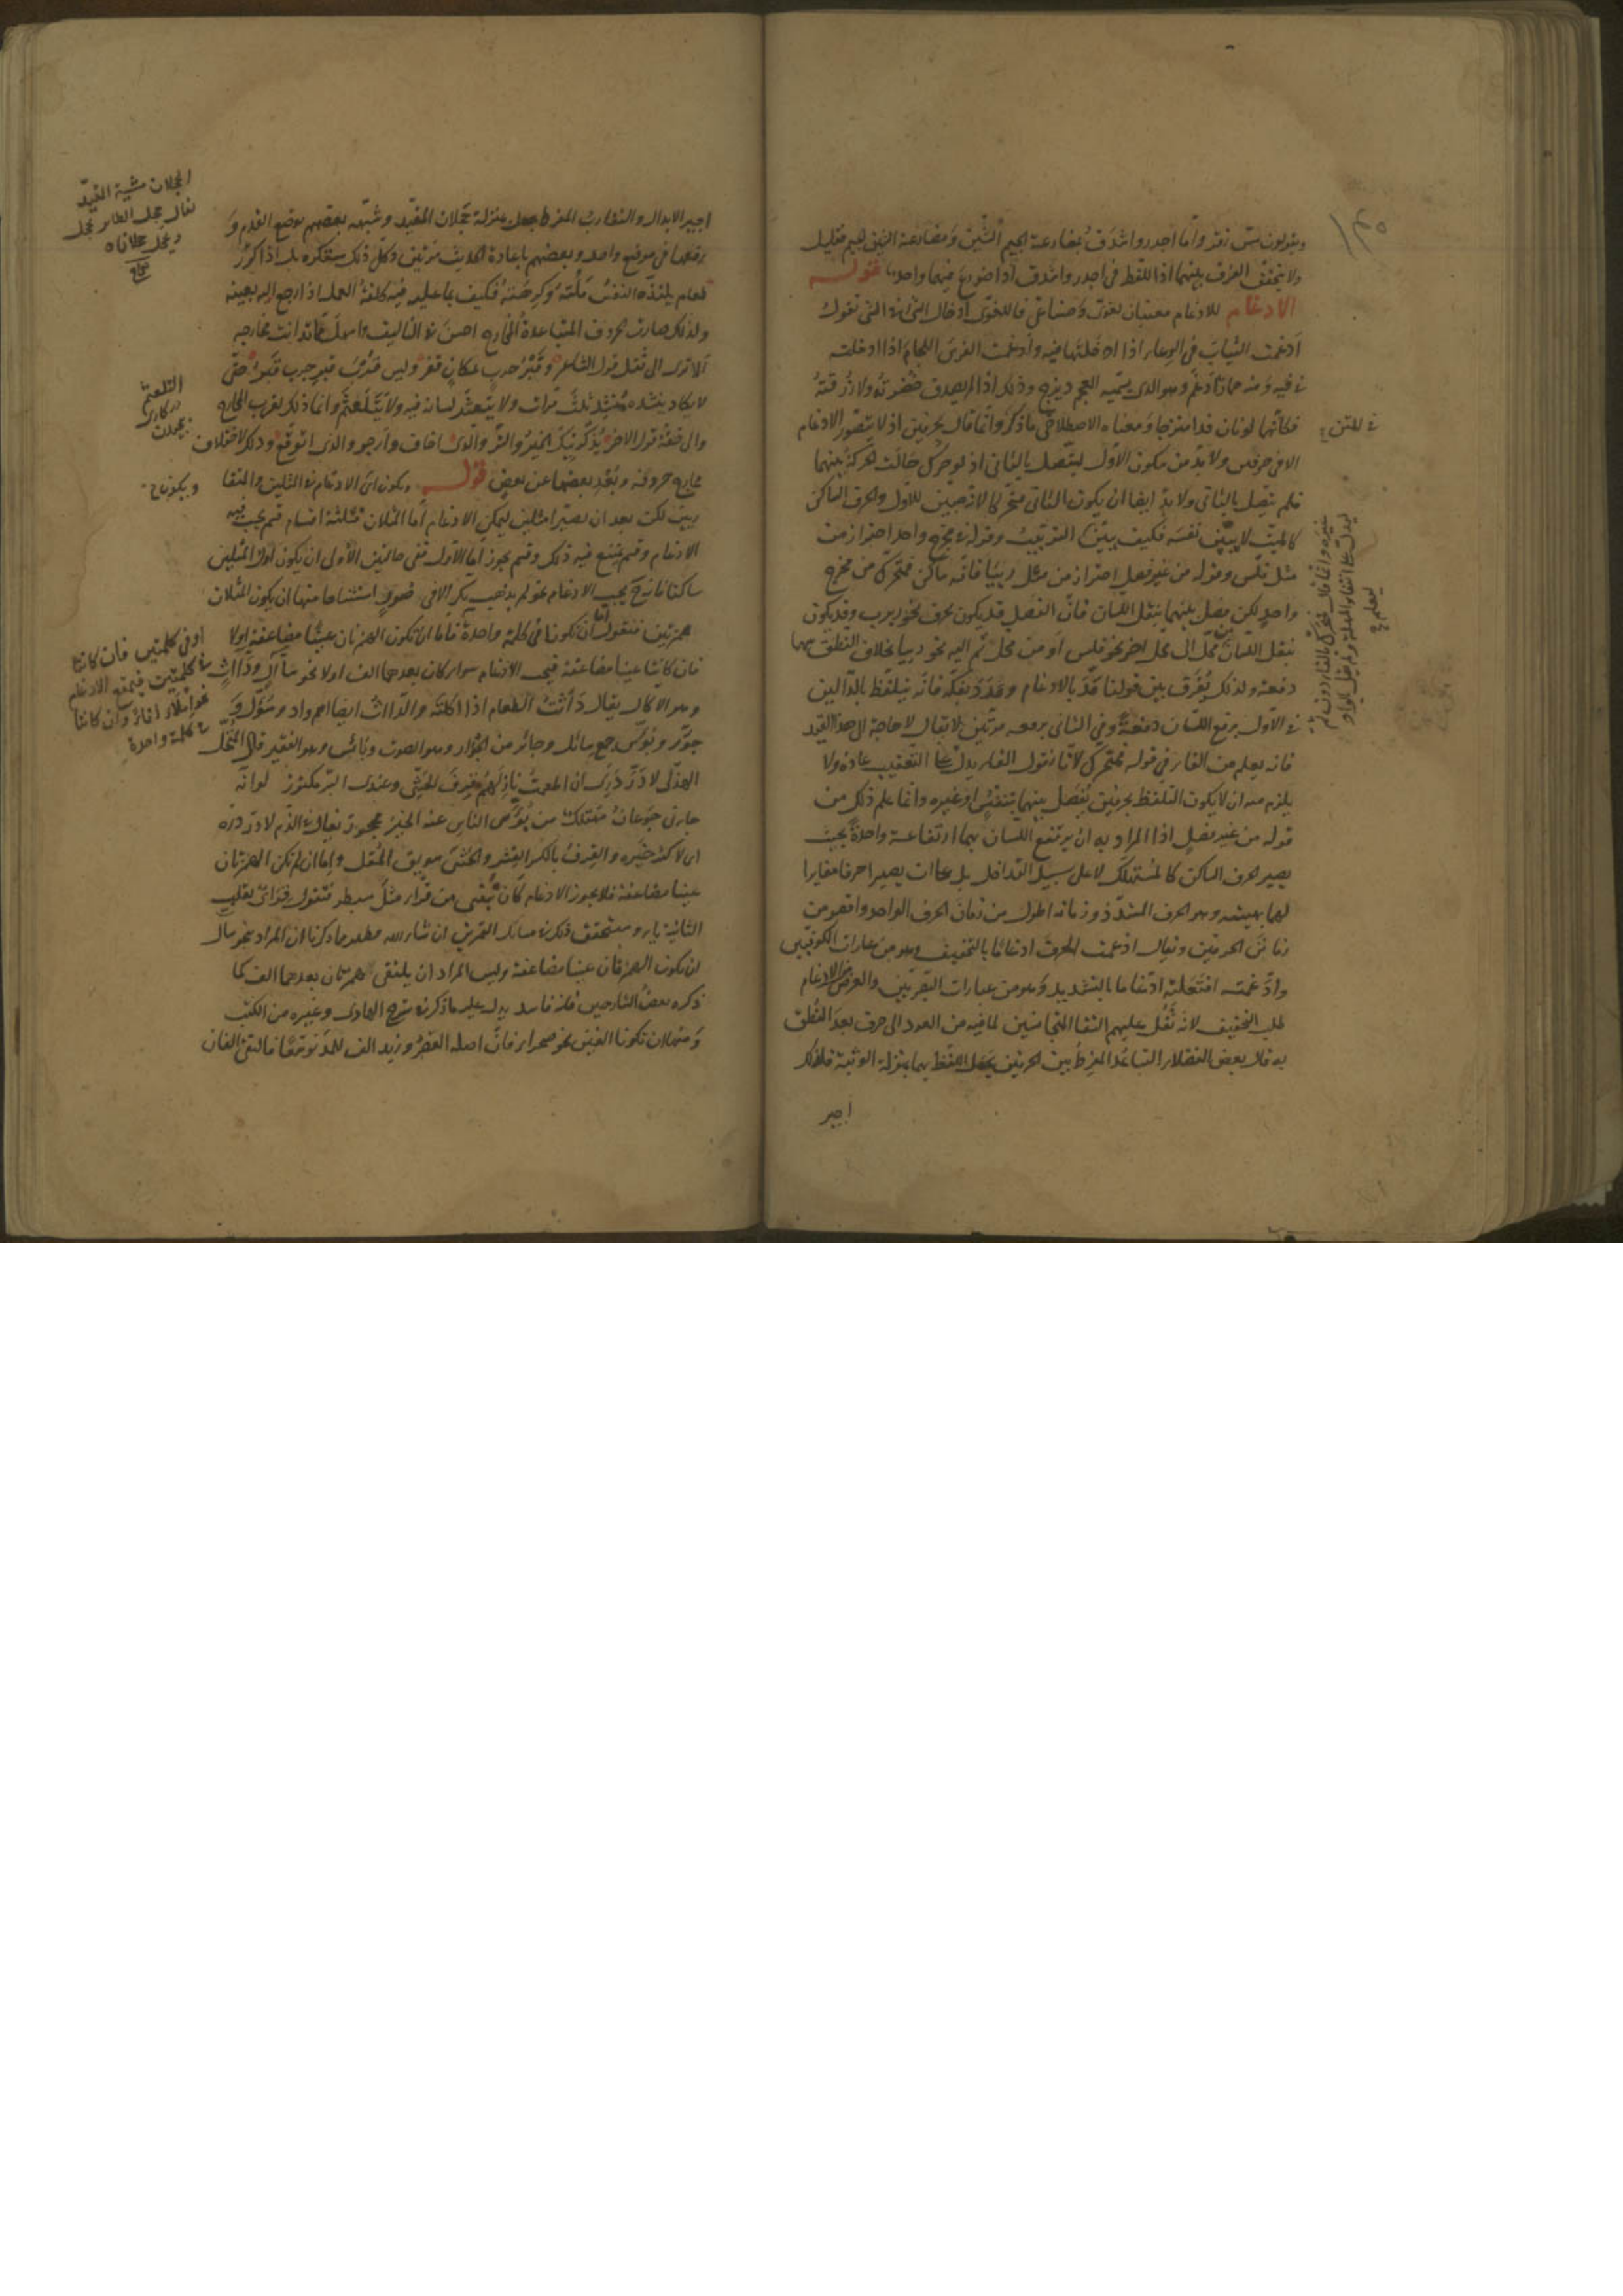 ويقولون مس زقر وأما أجدر وأشدق بمضارعة الجيم الشين ومضارعة الشين الجيم فقليل
ولا يتحقق الفرق بينهما اذا اللفظ في اجدر واشدق اذا ضورع فيهما واحد قوله
الادغام للادغام معنيان لغوي وصناعي فاللغوي ادخال الشئ في الشئ تقول
أدغمت الثياب في الوعاء اذا ادخلتها فيه وأدغمت الفرس اللجام اذا ادخلته
في فيه ومنه حمار أدغم وهو الذي يسميه العجم ديزج وذلك اذا لم يصدق خضرته ولا زرقته
فكأنهما لونان قد امتزجا ومعناه الاصطلاحي ما ذكره وانما قال بحرفين اذ لا يتصور الادغام
الا في حرفين ولا بد من سكون الاول ليتصل بالثاني اذ لو حرك حالت الحركة بينهما
فلم يتصل بالثاني ولا بد ايضا ان يكون الثاني متحركا لانه مبين للاول والحرف الساكن
كالميت لا يبين نفسه فكيف يبين غيره وقوله من مخرج واحد احتراز من
مثل فلس وقوله من غير فصل احتراز من مثل رييا فانه ساكن فمتحرك من مخرج
واحد لكن فصل بينهما بنقل اللسان فان الفصل قد يكون بحرف نحو ربرب وقد يكون
بنقل اللسان من محل الى محل اخر نحو فلس أو من محل ثم اليه نحو رييا بخلاف النطق بهما
دفعة ولذلك يفرق بين قولنا قد بالادغام وقدد بفكه فانه يتلفظ بالدالين
في الاول برفع اللسان دفعة وفي الثاني برفعه مرتين لا يقال لا حاجة الى هذا القيد
فانه يعلم من الفاء في قوله فمتحرك لأنا نقول الفاء يدل على التعقيب عادة ولا
يلزم منه ان لا يكون التلفظ بحرفين يفصل بينهما بتنفس او غيره وانما علم ذلك من
قوله من غير فصل اذ المراد به ان يرتفع اللسان بهما ارتفاعة واحدة بحيث
يصير الحرف الساكن كالمستهلك لا على سبيل التداخل بل على ان يصيرا حرفا مغايرا
لهما بهيئته وهو الحرف المشدد وزمانه اطول من زمان الحرف الواحد واقصر من
زمان الحرفين ويقال ادغمت الحرف ادغاما بالتخفيف وهو من عبارات الكوفيين
وادغمته افتعلته ادغاما بالتشديد وهو من عبارات البصريين والغرض من الادغام
طلب التخفيف لانه ثقل عليهم التقاء المتجانسين لما فيه من العود الى حرف بعد النطق
به قال بعض الفضلاء التباعد المفرط بين الحرفين يجعل اللفظ بهما بمنزلة الوثبة فلذلك
اجيز
في المتن
اجيز الابدال والتقارب المفرط يجعله بمنزلة حجلان المقيد وشبهه بعضهم بوضع القدم و
رفعها في موضع واحد وبعضهم باعادة الحديث مرتين وكل ذلك مستكره بل اذا كرر
طعام يلتذه النفس ملته وكرهته فكيف بما عليه فيه كلفة العمل اذا رجع اليه بعينه
ولذلك صارت الحروف المتباعدة المخارج احسن في التأليف واسهل مما تدانت مخارجه
ألا ترى الى ثقل قول الشاعر وقبر حرب بمكان قفر وليس قرب قبر حرب قبر حتى
لا يكاد ينشده منشد ثلث مرات ولا يتعثر لسانه فيه ولا يتلعثم وانما ذلك لقرب المخارج
والى خفة قول الاخر يذكرنيك الخير والشر والذي اخاف وأرجو والذي اتوقع وذلك لاختلاف
مخارج حروفه وبعد بعضها عن بعض قوله ويكون اي الادغام في المثلين والمتقا
ربين لكن بعد ان يصيرا مثلين ليمكن الادغام أما المثلان فثلثة اقسام قسم يجب فيه
الادغام وقسم يمتنع فيه ذلك وقسم يجوز أما الاول ففي حالتين الأولى ان يكون اول المثلين
ساكنا فانه يجب الادغام نحو لم يذهب بكر الا في صور استثناها منها ان يكون المثلان
همزتين فنقول اما ان تكونا في كلمة واحدة فاما ان تكون الهمزتان عينا مضاعفة اولا
فان كانتا عينا مضاعفة فيجب الادغام سواء كان بعدهما الف اولا نحو سأال ودأاث
وهو الاكال يقال دأثت الطعام اذا اكلته والدأاث ايضا اسم واد وسؤل و
جؤر وبؤس جمع سائل وجائر من الجؤار وهو الصوت وبائس وهو الفقير قال المتنخل
الهذلي لا در دري ان اطعمت نازلهم قرف الحتي وعندي البر مكنوز لو انه
جاءني جوعان مهتلك من بؤس الناس عنه الخير محجوز يقال في الذم لا در دره
اي لا كثر خيره والقرف بالكسر القشر والحتي سويق المقل واما ان لم تكن الهمزتان
عينا مضاعفة فلا يجوز الادغام كأن يبنى من قرأ مثل سبطر فتقول قرأي بقلب
الثانية ياء وسنحقق ذلك في مسائل التمرين ان شاء الله فظهر مما ذكرنا ان المراد بنحو سأال
ان تكون الهمزتان عينا مضاعفة وليس المراد ان يلتقي همزتان بعدهما الف كما
ذكره بعض الشارحين فانه فاسد يدل عليه ما ذكر في شرح الهادي وغيره من الكتب
ومنها ان تكونا الفين نحو صحراء فان اصله القصر وزيد الف للمد توسعا فالتقى الفان
الحجلان مشية المقيد
يقال حجل الطائر يحجل
ويحجل حجلانا
صحاح
التلعثم
ويكونان
او في كلمتين فان كانتا
في كلمتين فيمتنع الادغام
نحو املأ اناء وان كانتا
في كلمة واحدة